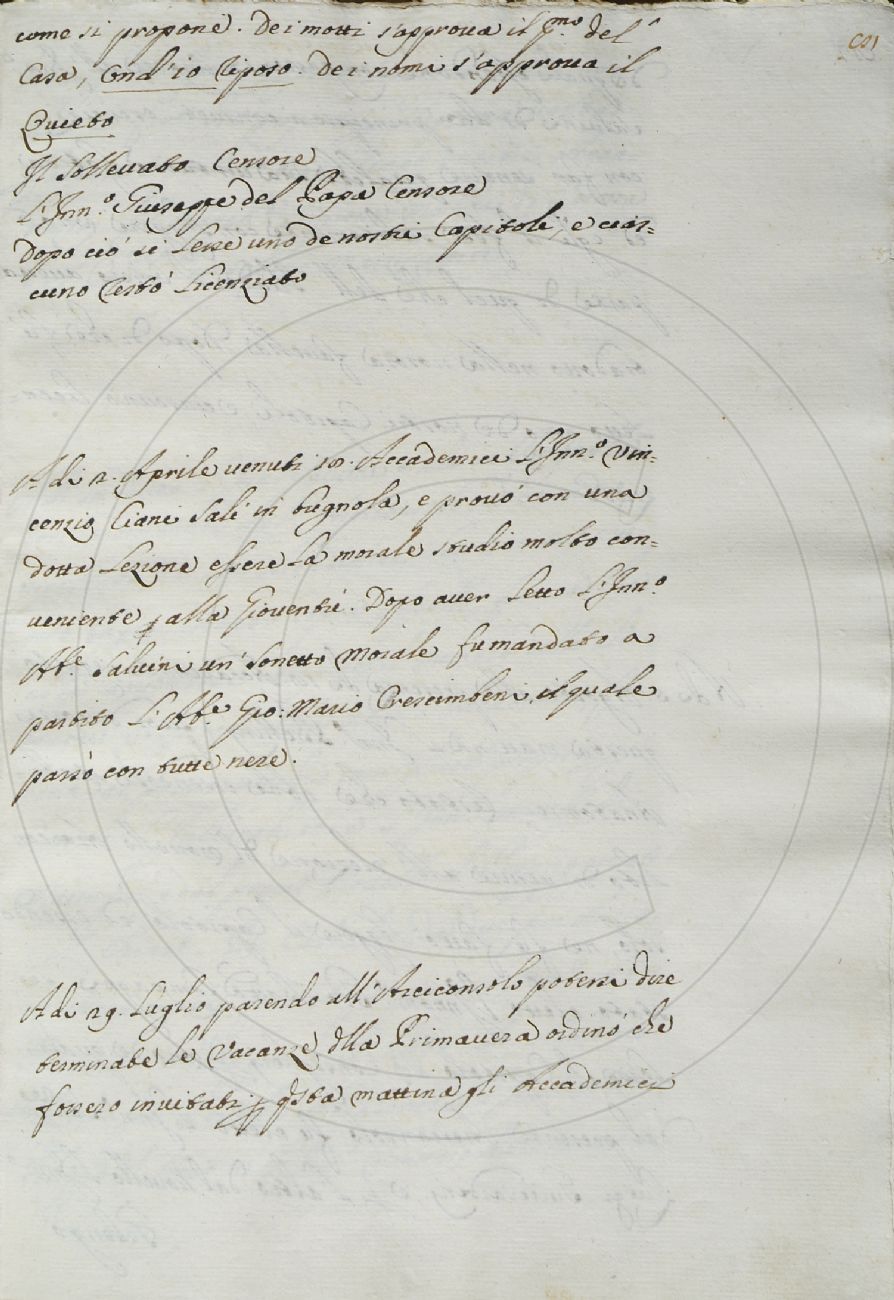 come si propone. Dei motti s'approva il p.mo del
Casa, Ond'io riposo. dei nomi s'approva il
Quieto
Il Sollevato Censore
L'Inn.o Giuseppe del Papa Censore
Dopo ciò si lesse uno de nostri Capitoli, e cias=
cuno restò licenziato
A di 2. Aprile venuti Accademici L'Inn.o Vin=
cenzio Ciani salì in bugnola, e provò con una
dotta Lezione essere la morale studio molto con=
veniente p alla Gioventù. Dopo aver Letto L'Inn.o
Ab.e Salvini un' Sonetto Morale fu mandato a
partito L'Ab.e Gio: Mario Crescimbeni, il quale
passò con tutte nere.
A di 29. Luglio parendo all'Arciconsolo potersi dire
terminate le vacanze dlla Primavera ordinò che
fossero invitati p qsta mattina gli Accademici